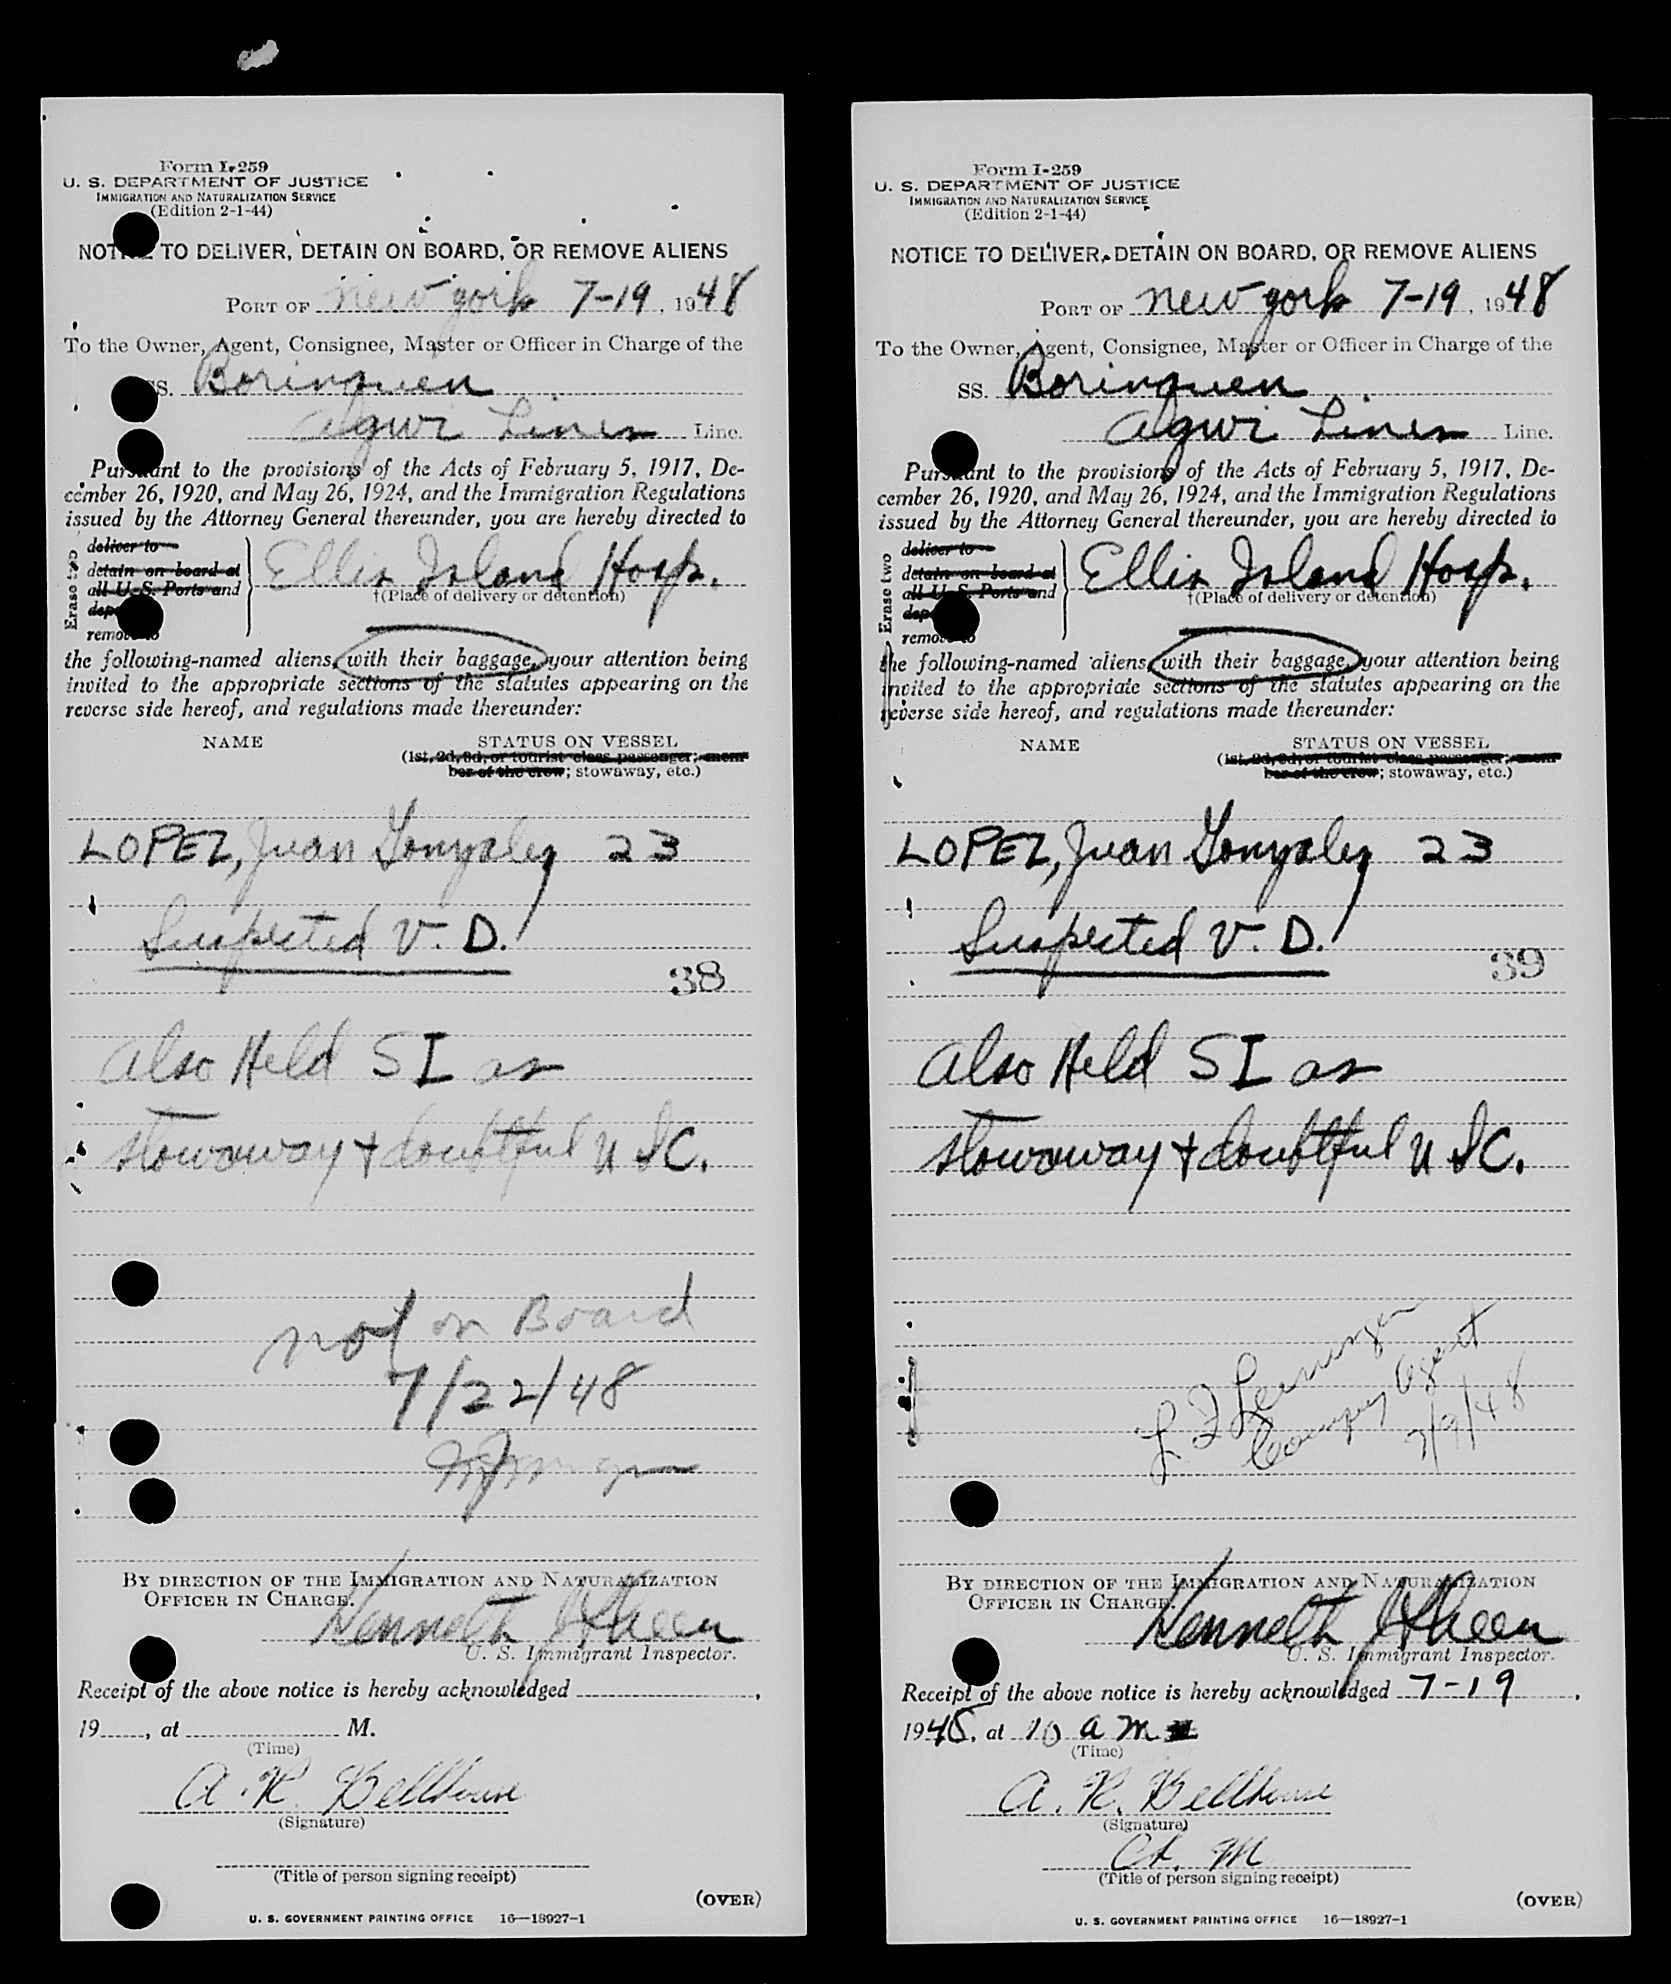 Form I-259
U. S. DEPARTMENT OF JUSTICE
IMMIGRATION AND NATURALIZATION SERVICE
(Edition 2-1-44)
NOTICE TO DELIVER, DETAIN ON BOARD, OR REMOVE ALIENS
PORT OF New York 7-19, 1948
To the Owner, Agent, Consignee, Master or Officer in Charge of the
SS. Borinquen
Agwi Lines Line.
Pursuant to the provisions of the Acts of February 5, 1917, De-
cember 26, 1920, and May 26, 1924, and the Immigration Regulations
issued by the Attorney General thereunder, you are hereby directed to
Erase two
deliver to
detain on board at
all U. S. Ports and
remove to
Ellis Island Hosp.
†(Place of delivery or detention)
the following-named aliens, with their baggage, your attention being
invited to the appropriate sections of the statutes appearing on the
reverse side hereof, and regulations made thereunder:
NAME STATUS ON VESSEL
(1st, 2d, 3d, or tourist class passenger; mem-
ber of the crew; stowaway, etc.)
LOPEZ, Juan Gonzalez 23
Suspected V. D.
38
Also Held SI as
stowaway + doubtful U S C.
not on Board
7/22/48
BY DIRECTION OF THE IMMIGRATION AND NATURALIZATION
OFFICER IN CHARGE.
Kenneth
U. S. Immigrant Inspector.
Receipt of the above notice is hereby acknowledged
19 , at M.
(Time)
A. R. Bellhouse
(Signature)
(Title of person signing receipt)
(OVER)
U. S. GOVERNMENT PRINTING OFFICE 16—18927-1
Form I-259
U. S. DEPARTMENT OF JUSTICE
IMMIGRATION AND NATURALIZATION SERVICE
(Edition 2-1-44)
NOTICE TO DELIVER, DETAIN ON BOARD, OR REMOVE ALIENS
PORT OF New York 7-19, 1948
To the Owner, Agent, Consignee, Master or Officer in Charge of the
SS. Borinquen
Agwi Lines Line.
Pursuant to the provisions of the Acts of February 5, 1917, De-
cember 26, 1920, and May 26, 1924, and the Immigration Regulations
issued by the Attorney General thereunder, you are hereby directed to
Erase two
deliver to
detain on board at
all U. S. Ports and
remove to
Ellis Island Hosp.
†(Place of delivery or detention)
the following-named aliens, with their baggage, your attention being
invited to the appropriate sections of the statutes appearing on the
reverse side hereof, and regulations made thereunder:
NAME STATUS ON VESSEL
(1st, 2d, 3d, or tourist class passenger; mem-
ber of the crew; stowaway, etc.)
LOPEZ, Juan Gonzalez 23
Suspected V. D.
39
Also Held SI as
stowaway + doubtful U S C.
Company Agent
7/9/48
BY DIRECTION OF THE IMMIGRATION AND NATURALIZATION
OFFICER IN CHARGE.
Kenneth
U. S. Immigrant Inspector.
Receipt of the above notice is hereby acknowledged 7-19,
1948, at 10 a M
(Time)
A. R. Bellhouse
(Signature)
Ch. M
(Title of person signing receipt)
(OVER)
U. S. GOVERNMENT PRINTING OFFICE 16—18927-1